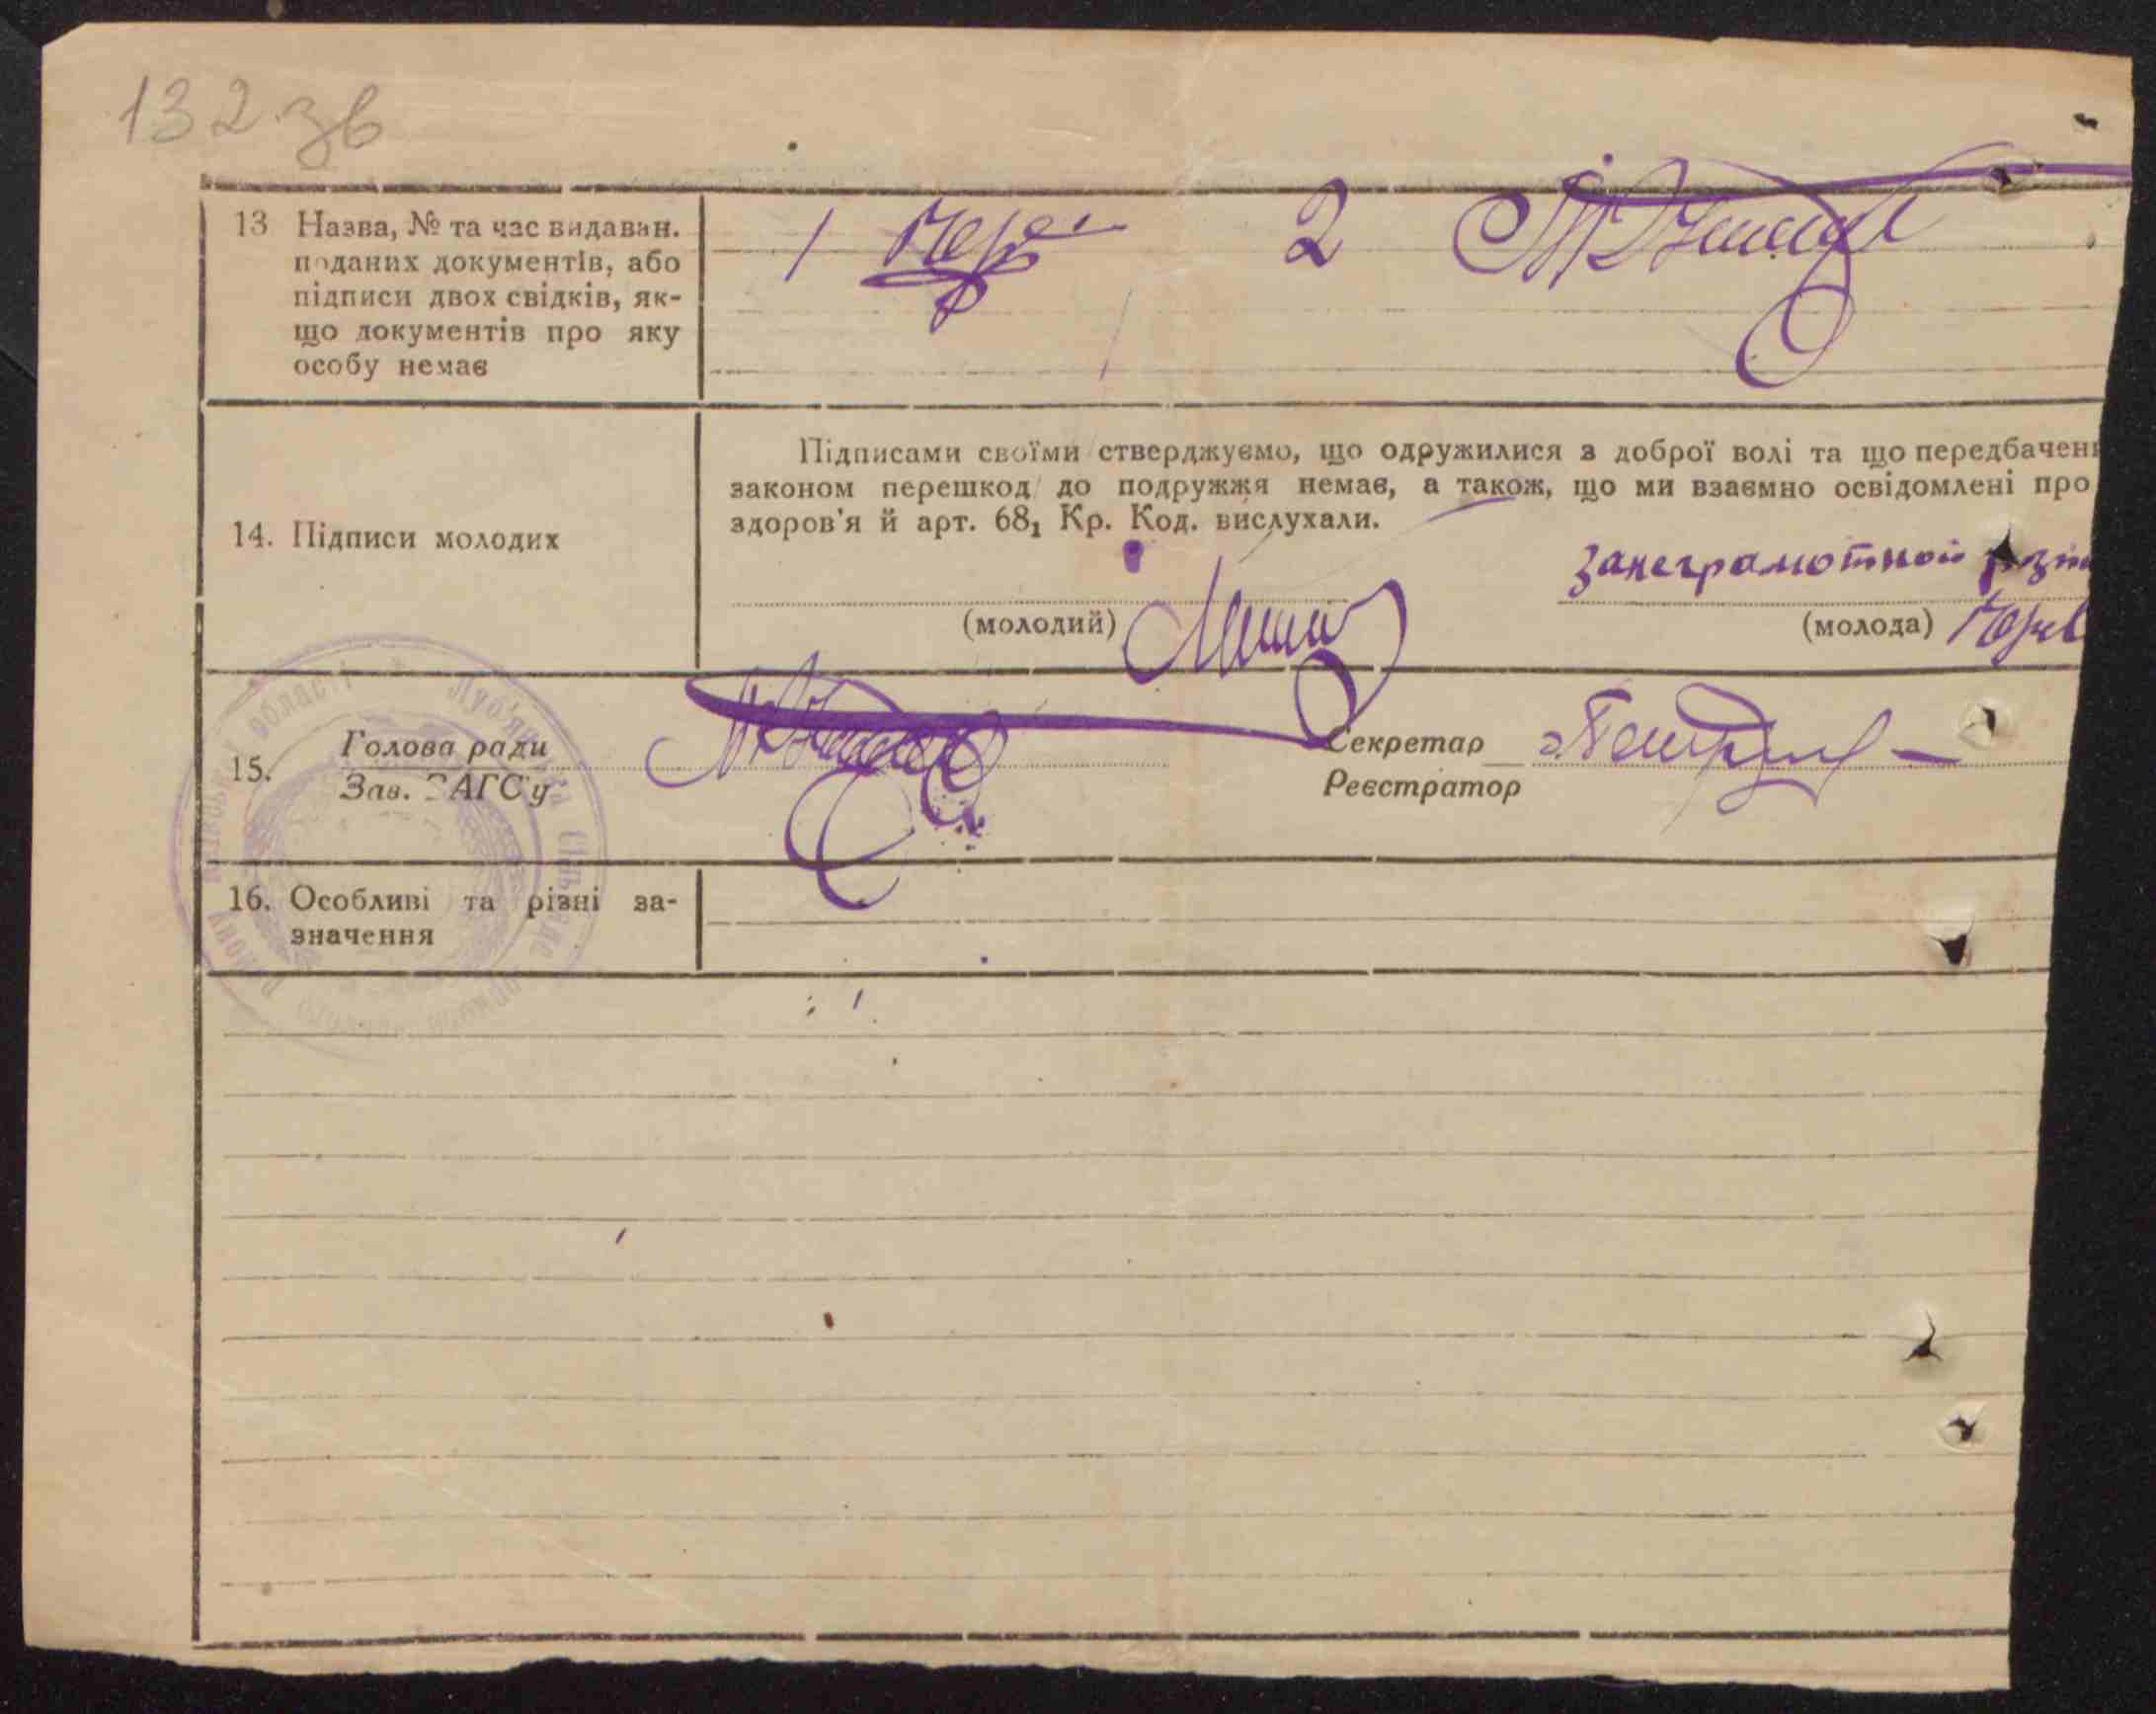 132 зв
13 Назва, № та час видаван.
поданих документів, або
підписи двох свідків, як-
що документів про яку
особу немає
1
2
14. Підписи молодих
Підписами своїми стверджуємо, що одружилися з доброї волі та що передбачені
законом перешкод до подружжя немає, а також, що ми взаємно освідомлені про
здоров'я й арт. 68₁ Кр. Код. вислухали.
занеграмотной
(молодий)
(молода)
15.
Голова ради
Зав. ЗАГС'у
Секретар
Реєстратор
16. Особливі та різні за-
значення